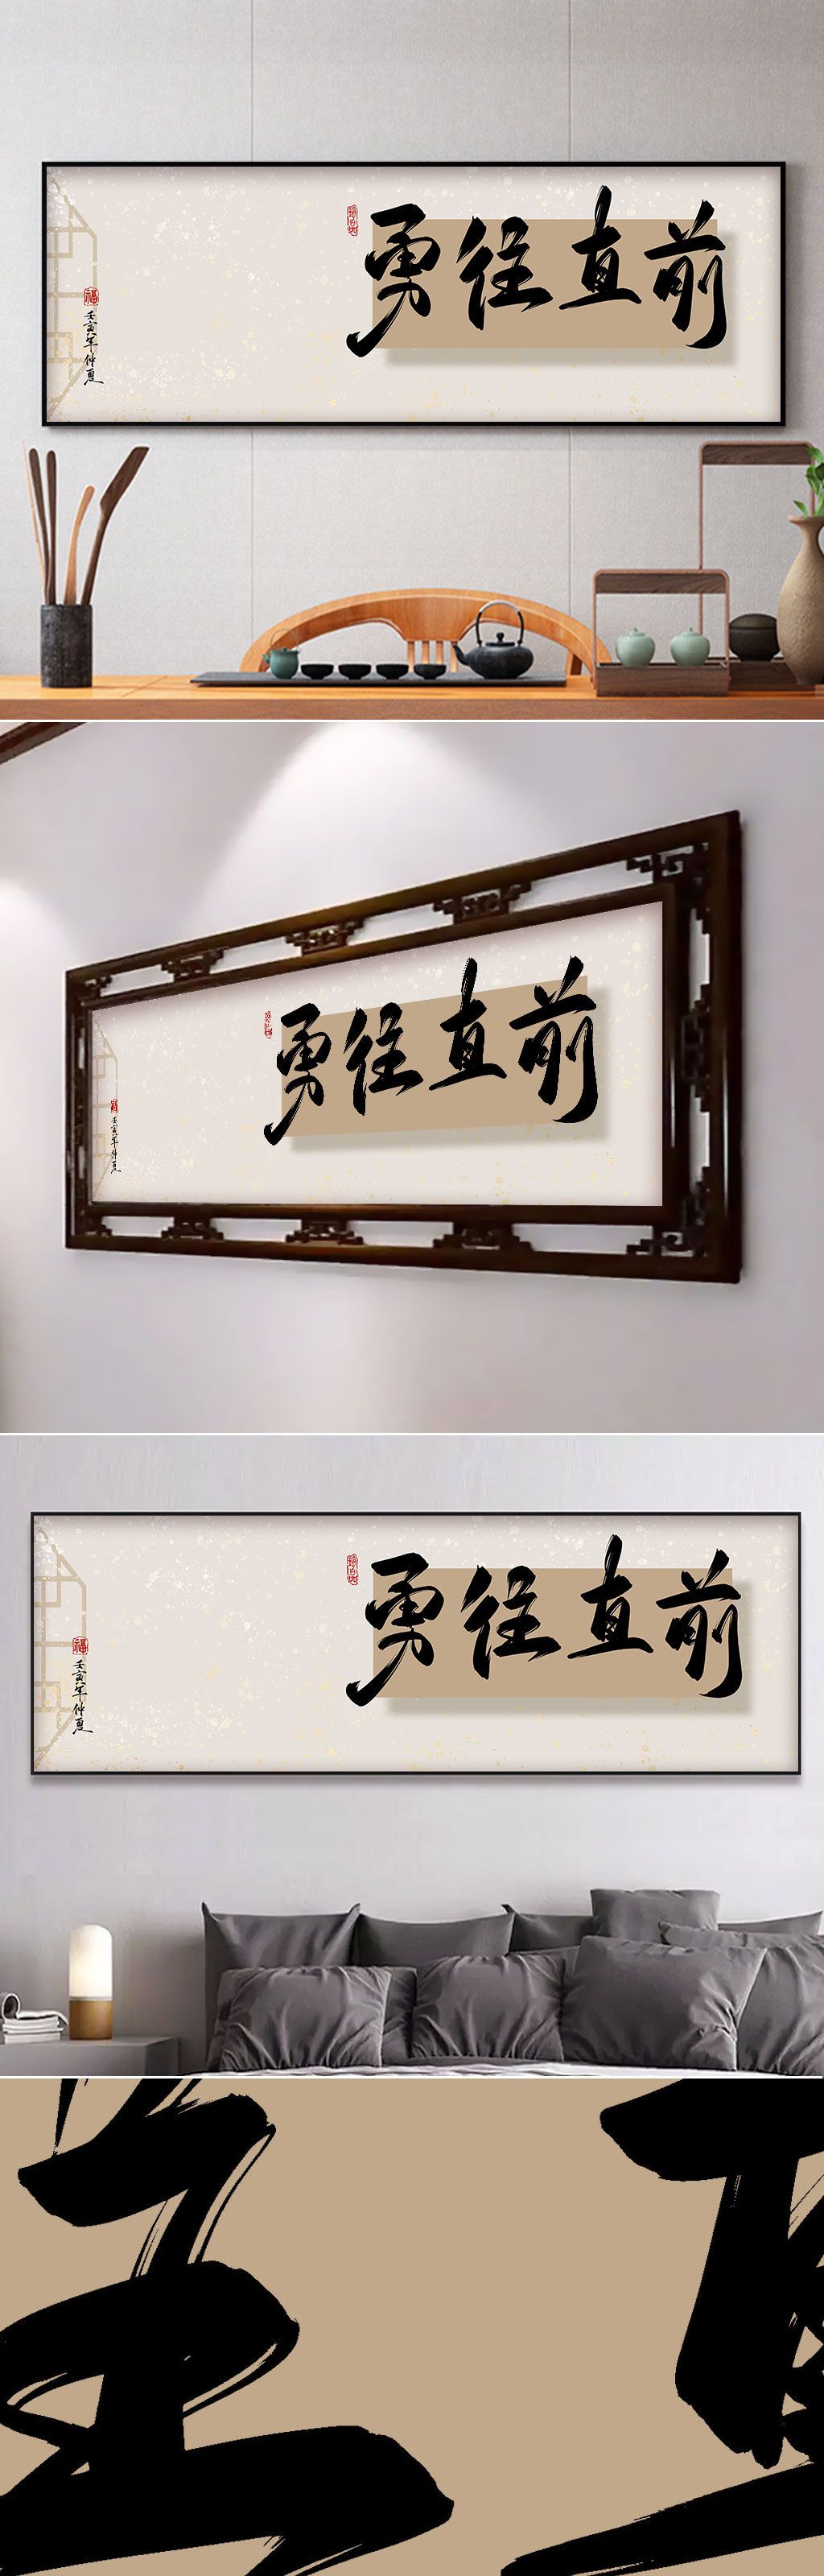 勇往直前
福
壬寅年仲夏
勇往直前
福
壬寅年仲夏
勇往直前
福
壬寅年仲夏